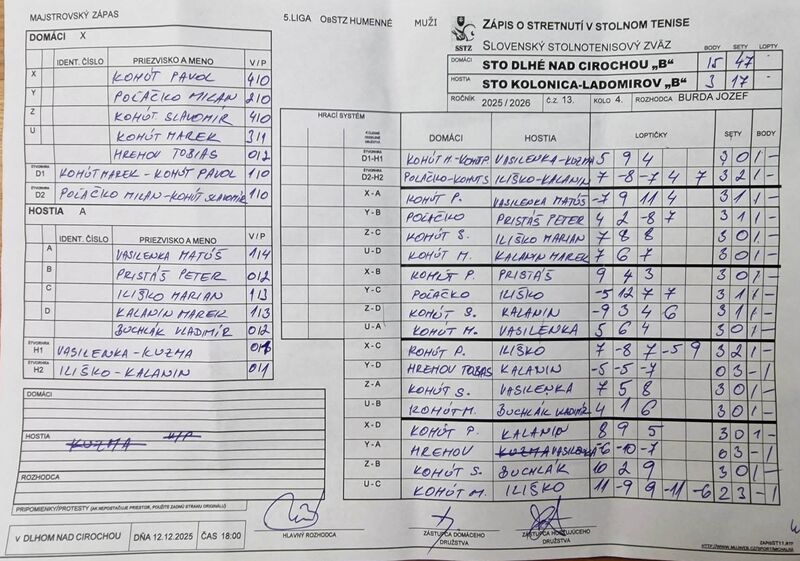 MAJSTROVSKÝ ZÁPAS
5.LIGA ObSTZ HUMENNÉ MUŽI
ZÁPIS O STRETNUTÍ V STOLNOM TENISE
SSTZ SLOVENSKÝ STOLNOTENISOVÝ ZVÄZ BODY SETY LOPTY
DOMÁCI STO DLHÉ NAD CIROCHOU „B" 15 47
HOSTIA STO KOLONICA-LADOMIROV „B" 3 17
ROČNÍK 2025/2026 č.z. 13. KOLO 4. ROZHODCA BURDA JOZEF
DOMÁCI X
IDENT. ČÍSLO PRIEZVISKO A MENO V / P
X KOHÚT PAVOL 4/0
Y POĽAČKO MILAN 2/0
Z KOHÚT SLAVOMÍR 4/0
U KOHÚT MAREK 3/1
HREHOV TOBIAS 0/2
ŠTVORHRA D1 KOHÚT MAREK - KOHÚT PAVOL 1/0
ŠTVORHRA D2 POĽAČKO MILAN-KOHÚT SLAVOMÍR 1/0
HOSTIA A
IDENT. ČÍSLO PRIEZVISKO A MENO V / P
A VASILENKA MATÚŠ 1/4
B PRISTÁŠ PETER 0/2
C ILIŠKO MARIAN 1/3
D KALANIN MAREK 1/3
BUCHLÁK VLADIMÍR 0/2
ŠTVORHRA H1 VASILENKA - KUZMA
ŠTVORHRA H2 ILIŠKO - KALANIN 0/1
DOMÁCI
HOSTIA KUZMA
ROZHODCA
PRIPOMIENKY/PROTESTY (AK NEPOSTAČUJE PRIESTOR, POUŽITE ZADNÚ STRANU ORIGINÁLU)
HRACÍ SYSTÉM DOMÁCI HOSTIA LOPTIČKY SÉTY BODY
ŠTVORHRA D1-H1 KOHÚT M.-KOHÚT P. VASILENKA-KUZMA 5 9 4 3 0 1 -
ŠTVORHRA D2-H2 POĽAČKO-KOHÚT S. ILIŠKO-KALANIN 7 -8 -7 4 7 3 2 1 -
X - A KOHÚT P. VASILENKA MATÚŠ -7 9 11 4 3 1 1 -
Y - B POĽAČKO PRISTÁŠ PETER 4 2 -8 7 3 1 1 -
Z - C KOHÚT S. ILIŠKO MARIAN 7 8 8 3 0 1 -
U - D KOHÚT M. KALANIN MAREK 7 6 7 3 0 1 -
X - B KOHÚT P. PRISTÁŠ 9 4 3 3 0 1 -
Y - C POĽAČKO ILIŠKO -5 12 7 7 3 1 1 -
Z - D KOHÚT S. KALANIN -9 3 4 6 3 1 1 -
U - A KOHÚT M. VASILENKA 5 6 4 3 0 1 -
X - C KOHÚT P. ILIŠKO 7 -8 7 -5 9 3 2 1 -
Y - D HREHOV TOBIAS KALANIN -5 -5 -7 0 3 - 1
Z - A KOHÚT S. VASILENKA 7 5 8 3 0 1 -
U - B KOHÚT M. BUCHLÁK VLADIMÍR 4 1 6 3 0 1 -
X - D KOHÚT P. KALANIN 8 9 5 3 0 1 -
Y - A HREHOV KUZMA VASILENKA -6 -10 -7 0 3 - 1
Z - B KOHÚT S. BUCHLÁK 10 2 9 3 0 1 -
U - C KOHÚT M. ILIŠKO 11 -9 9 -11 -6 2 3 - 1
v DLHOM NAD CIROCHOU DŇA 12.12.2025 ČAS 18:00
HLAVNÝ ROZHODCA
ZÁSTUPCA DOMÁCEHO DRUŽSTVA
ZÁSTUPCA HOSŤUJÚCEHO DRUŽSTVA